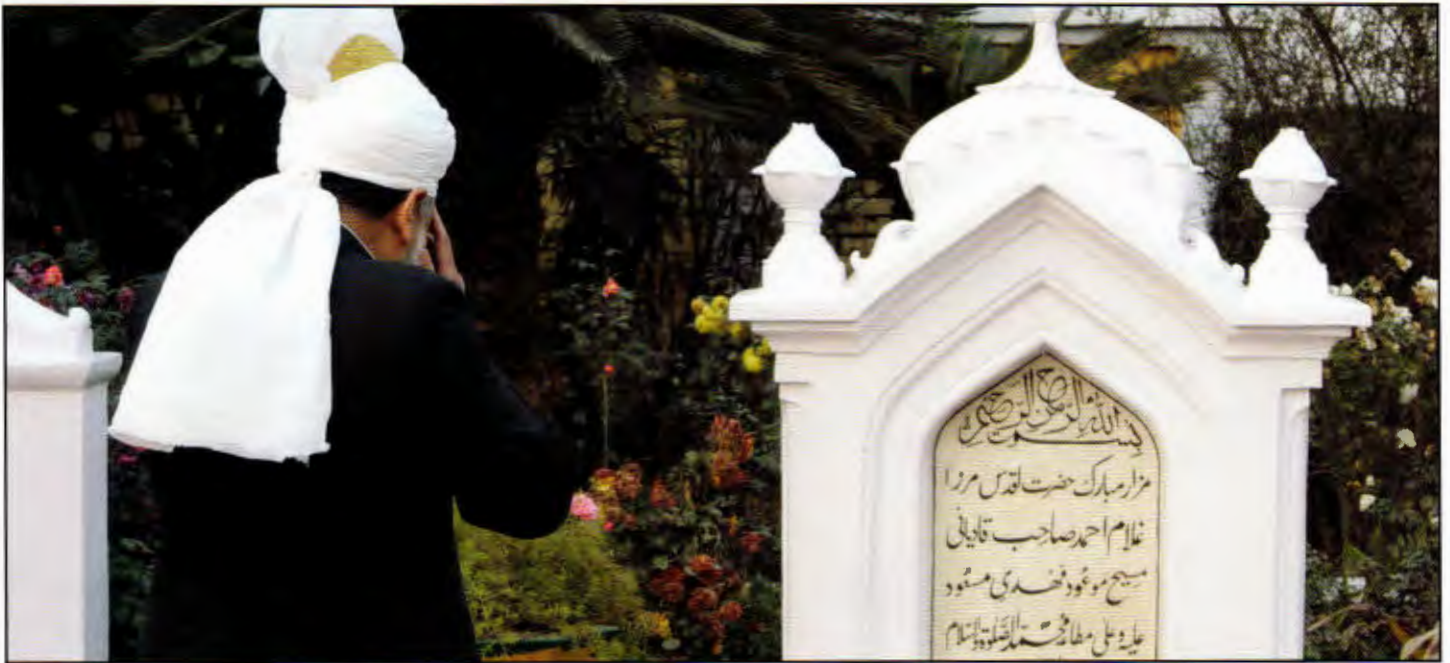 بسم اللہ الرحمن الرحیم
مزار مبارک حضرت اقدس مرزا
غلام احمد صاحب قادیانی
مسیح موعود و مہدی مسعود
علیہ وعلی مطاعہ محمد الصلوٰۃ والسلام